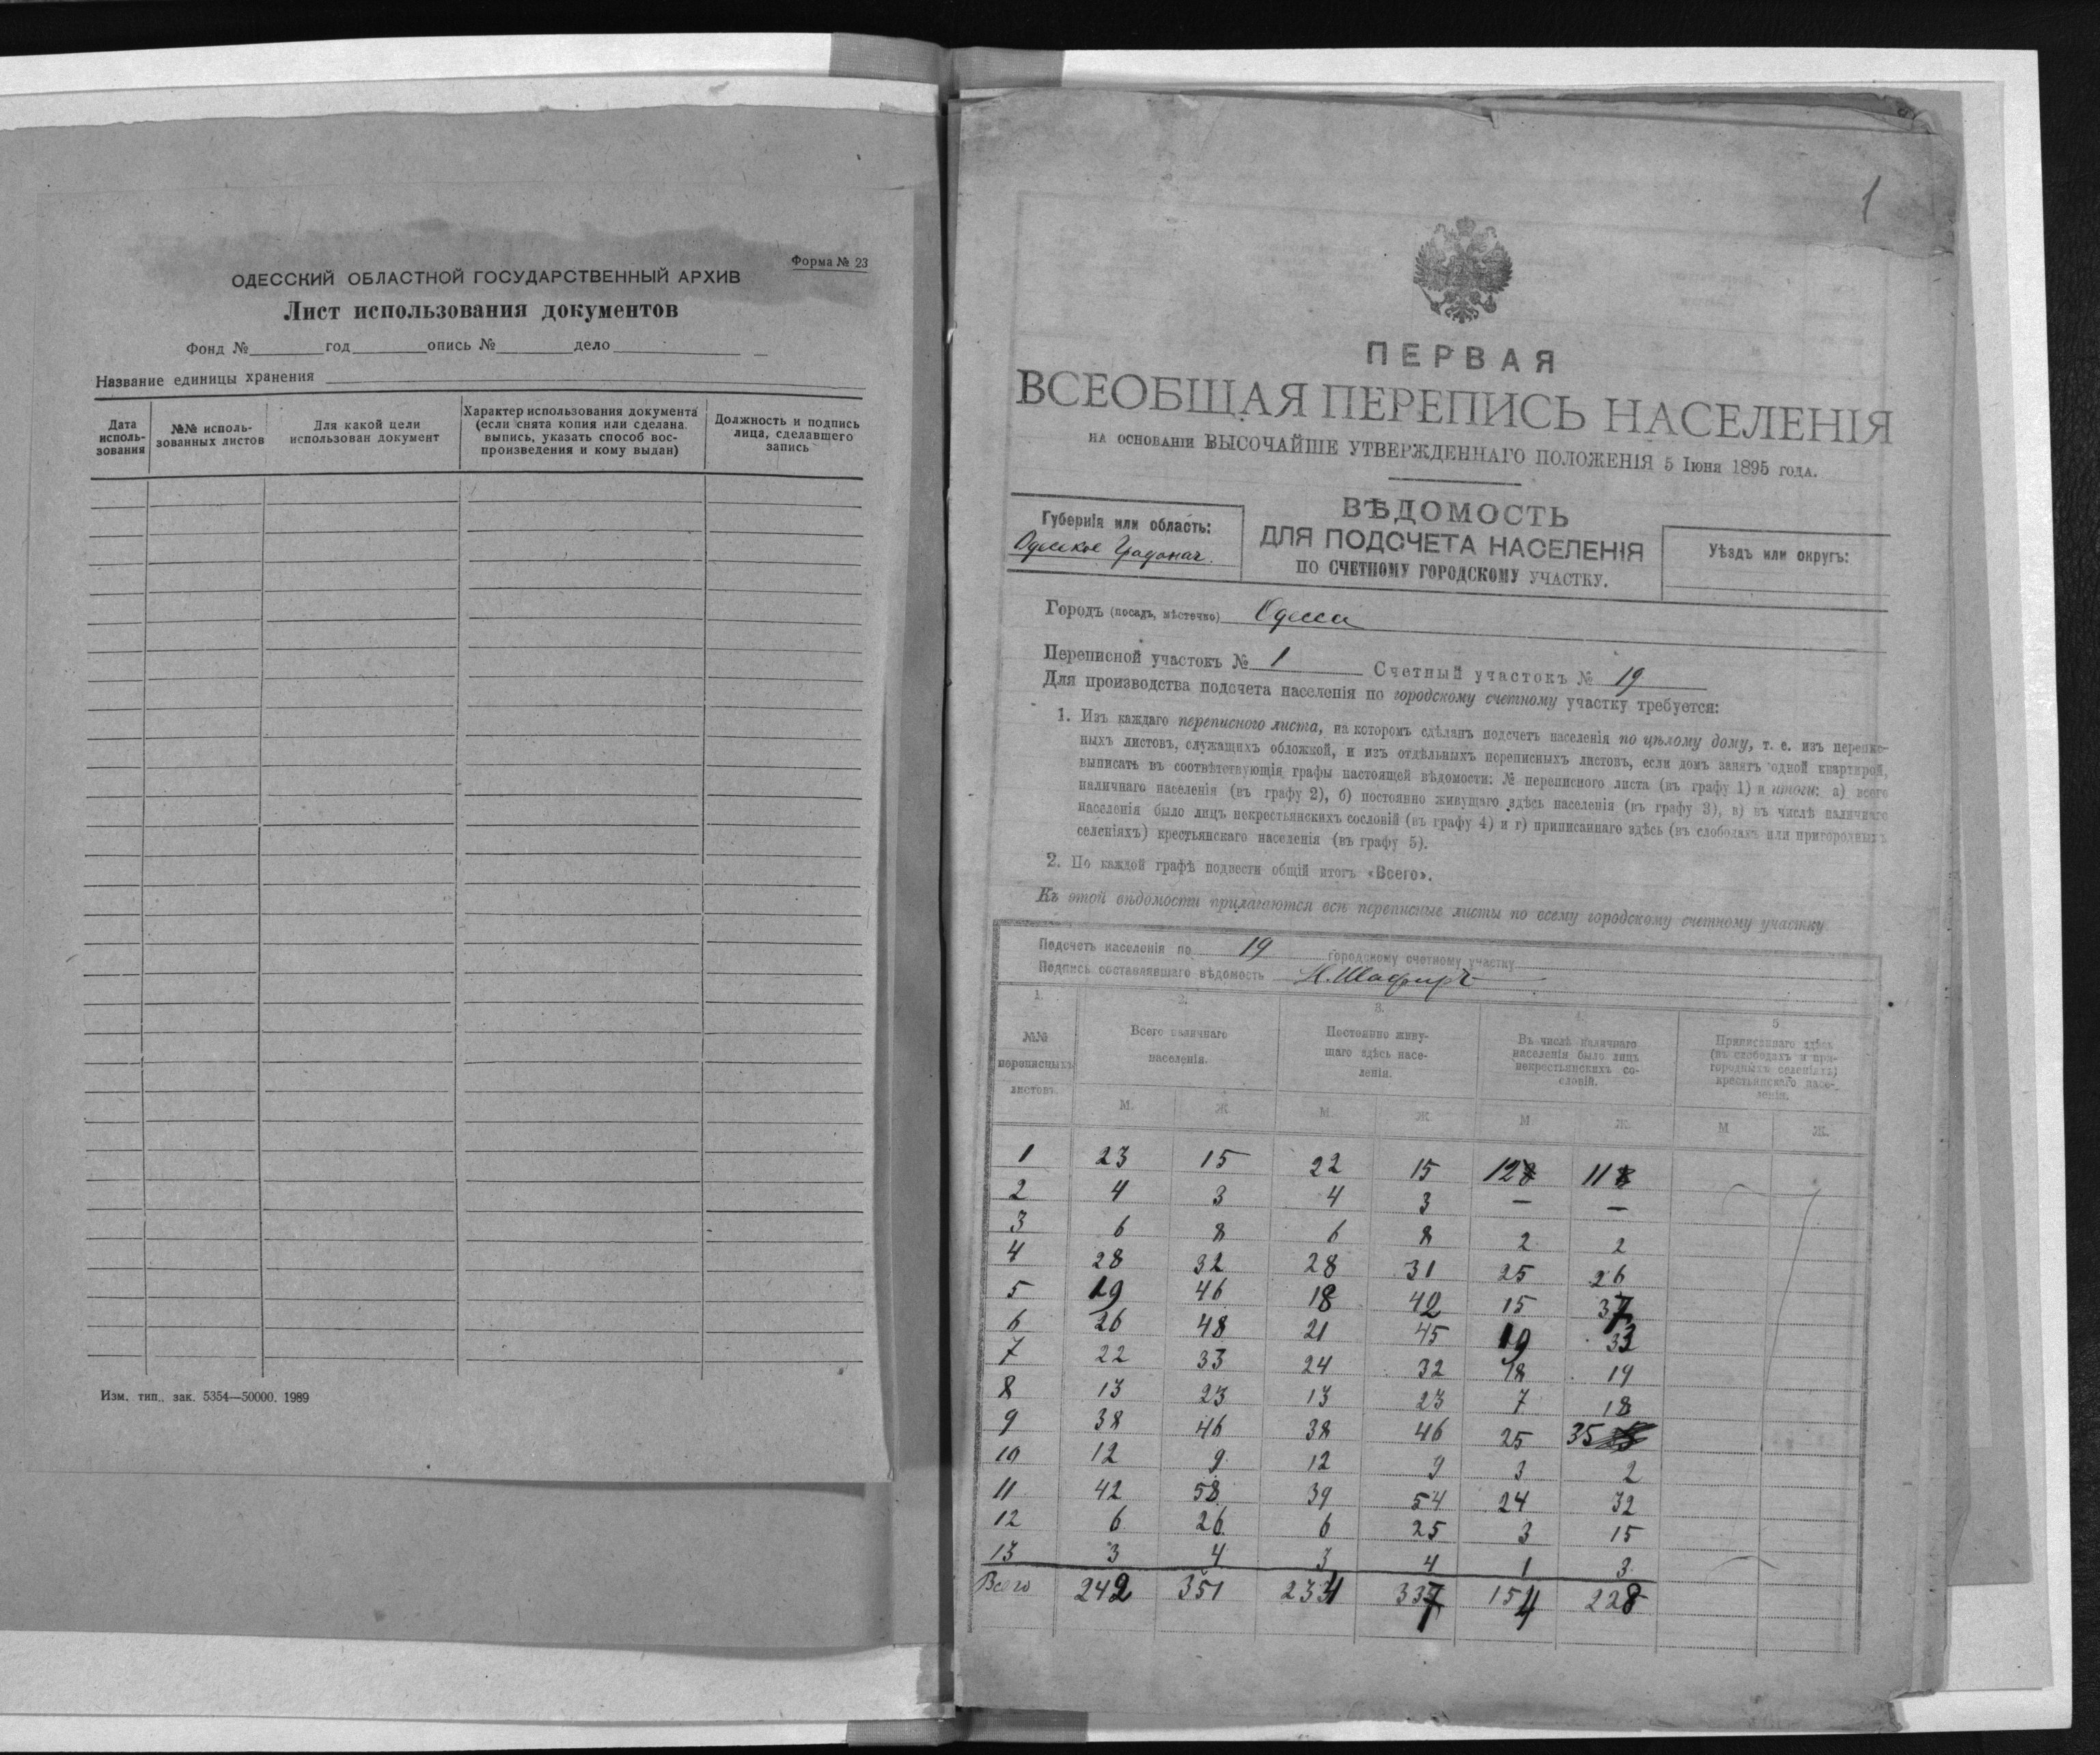 Форма № 23
ОДЕССКИЙ ОБЛАСТНОЙ ГОСУДАРСТВЕННЫЙ АРХИВ
Лист использования документов
Фонд № год опись № дело
Название единицы хранения
Дата исполь-зования
№№ исполь-зованных листов
Для какой цели использован документ
Характер использования документа (если снята копия или сделана выпись, указать способ вос-произведения и кому выдан)
Должность и подпись лица, сделавшего запись
Изм. тип., зак. 5354—50000. 1989
1
ПЕРВАЯ
ВСЕОБЩАЯ ПЕРЕПИСЬ НАСЕЛЕНІЯ
НА ОСНОВАНІИ ВЫСОЧАЙШЕ УТВЕРЖДЕННАГО ПОЛОЖЕНІЯ 5 Іюня 1895 года.
Губернія или область:
Одесское Градонач.
ВѢДОМОСТЬ
ДЛЯ ПОДСЧЕТА НАСЕЛЕНІЯ
ПО СЧЕТНОМУ ГОРОДСКОМУ УЧАСТКУ.
Уѣздъ или округъ:
Городъ (посадъ, мѣстечко) Одесса
Переписной участокъ № 1 Счетный участокъ № 19
Для производства подсчета населенія по городскому счетному участку требуется:
1. Изъ каждаго переписного листа, на которомъ сдѣланъ подсчетъ населенія по цѣлому дому, т. е. изъ перепис-
ныхъ листовъ, служащихъ обложкой, и изъ отдѣльныхъ переписныхъ листовъ, если домъ занятъ одной квартирой,
выписать въ соотвѣтствующія графы настоящей вѣдомости: № переписного листа (въ графу 1) и итоги: а) всего
наличнаго населенія (въ графу 2), б) постоянно живущаго здѣсь населенія (въ графу 3), в) въ числѣ наличнаго
населенія было лицъ некрестьянскихъ сословій (въ графу 4) и г) приписаннаго здѣсь (въ слободахъ или пригородныхъ
селеніяхъ) крестьянскаго населенія (въ графу 5).
2. По каждой графѣ подвести общій итогъ «Всего».
Къ этой вѣдомости прилагаются всѣ переписные листы по всему городскому счетному участку
Подсчетъ населенія по 19 городскому счетному участку
Подпись составлявшаго вѣдомость Н. Шафиръ
1. 2. 3. 4. 5
№№ переписныхъ листовъ.
Всего наличнаго населенія.
Постоянно живу-щаго здѣсь насе-ленія.
Въ числѣ наличнаго населенія было лицъ некрестьянскихъ со-словій.
Приписаннаго здѣсь (въ слободахъ и при-городныхъ селеніяхъ) крестьянскаго насе-ленія.
М. Ж. М. Ж. М. Ж. М. Ж.
1 23 15 22 15 12 11
2 4 3 4 3 — —
3 6 8 6 8 2 2
4 28 32 28 31 25 26
5 19 46 18 42 15 37
6 26 48 21 45 19 33
7 22 33 24 32 18 14
8 13 23 13 23 7 18
9 38 46 38 46 25 35
10 12 9 12 9 3 2
11 42 58 39 54 24 32
12 6 26 6 25 3 15
13 3 4 3 4 1 3
Всего 242 351 234 337 154 228